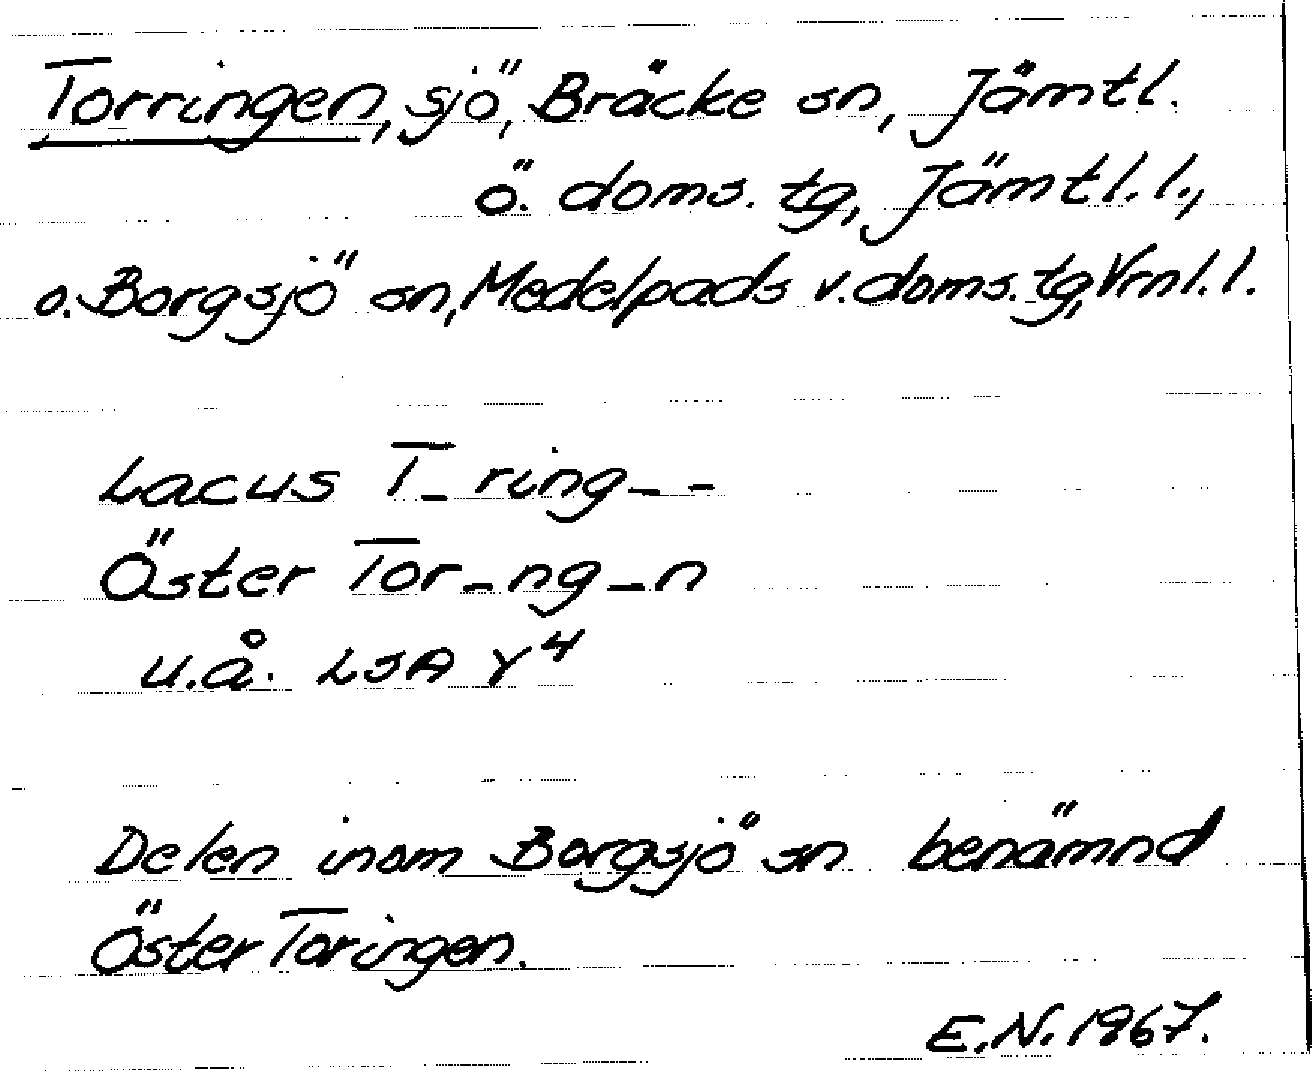 Torringen, sjö, Bräcke sn, Jämtl.
ö. doms. tg, Jämtl. l.,
o. Borgsjö sn, Medelpads v. doms. tg, Vrnl. l.
Lacus T_ring_ _
Öster Tor_ng_n
u.å. LSA Y4
Delen inom Borgsjö sn benämnd
Öster Toringen.
E.N. 1967.